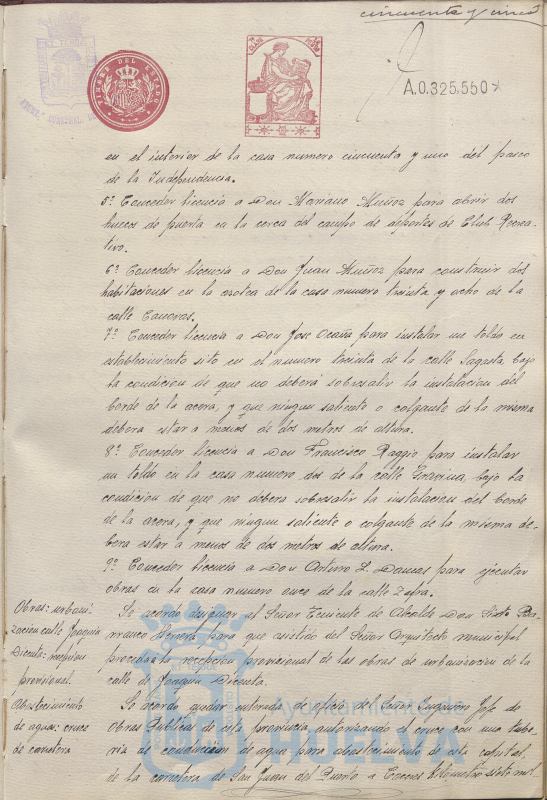 cincuenta y cinco
TIMBRE DEL ESTADO
A.0.325.550*
en el interior de la casa numero cincuenta y uno del paseo
de la Independencia.
5º Conceder licencia a Don Mariano Muñoz para abrir dos
huecos de puerta en la cerca del campo de deportes de Club Recrea-
tivo.
6º Conceder licencia a Don Juan Muñoz para construir dos
habitaciones en la azotea de la casa numero treinta y ocho de la
calle Canovas.
7º Conceder licencia a Don Jose Ocaña para instalar un toldo en
establecimiento sito en el numero treinta de la calle Sagasta, bajo
la condicion de que no debera sobresalir la instalacion del
borde de la acera, y que ningun saliente o colgante de la misma
debera estar a menos de dos metros de altura.
8º Conceder licencia a Don Francisco Raggio para instalar
un toldo en la casa numero dos de la calle Gravina, bajo la
condicion de que no debera sobresalir la instalacion del borde
de la acera, y que ningun saliente o colgante de la misma de-
bera estar a menos de dos metros de altura.
9º Conceder licencia a Don Arturo L. Damas para ejecutar
obras en la casa numero once de la calle Zafra.
Obras: urbani-
zacion calle Joaquin
Dicenta: recepcion
provisional.
Se acordo designar al Señor Teniente de Alcalde Don Sixto Ba-
rranco para que asistido del Señor Arquitecto municipal
proceda a la recepcion provisional de las obras de urbanizacion de la
calle de Joaquin Dicenta.
Abastecimiento
de aguas: cruce
de carretera
Se acordo quedar enterado de oficio del Señor Ingeniero Jefe de
Obras Publicas de esta provincia autorizando el cruce con una tube-
ria de conduccion de agua para abastecimiento de esta capital,
de la carretera de San Juan del Puerto a Caceres kilometro siete mil